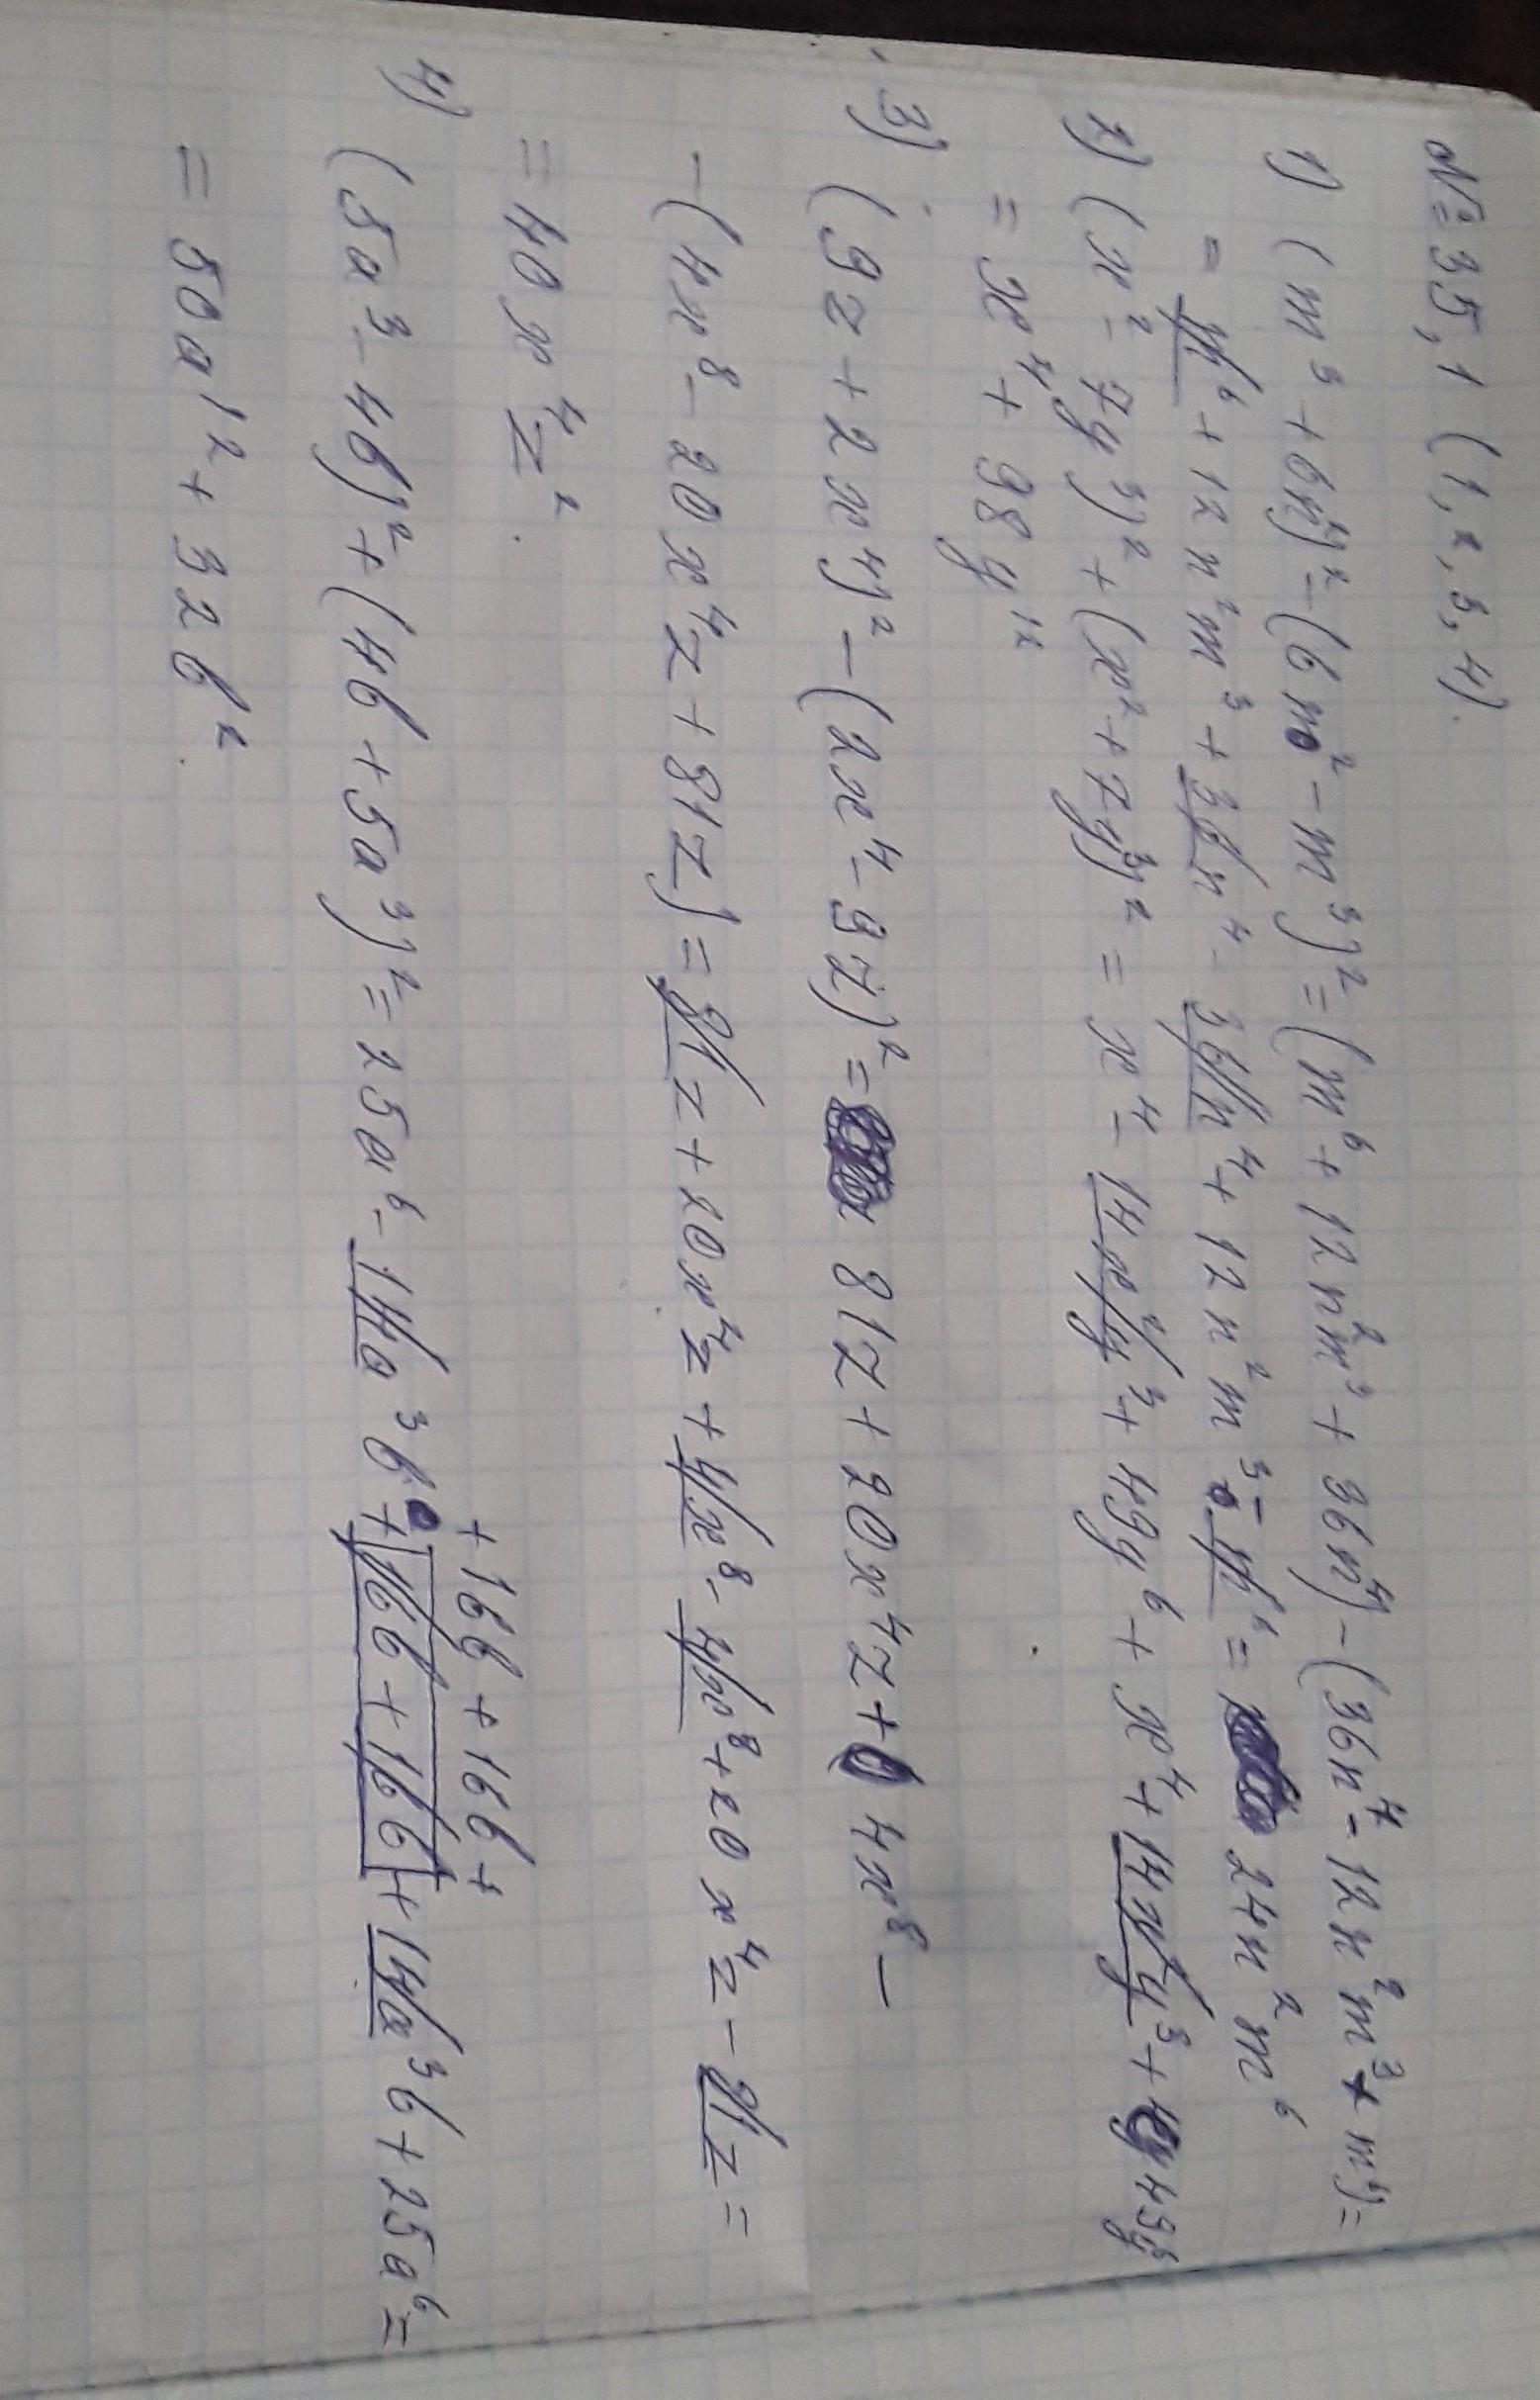 № 35,1 (1, 2, 3, 4).
1) (m³ + 6n²)² - (6n² - m³)² = (m⁶ + 12n²m³ + 36n⁴) - (36n⁴ - 12n²m³ + m⁶) =
= m⁶ + 12n²m³ + 36n⁴ - 36n⁴ + 12n²m³ - m⁶ = 24n²m⁶
2) (x² - 7y³)² + (x² + 7y³)² = x⁴ - 14x²y³ + 49y⁶ + x⁴ + 14x²y³ + 49y⁶
= x⁴ + 98y¹²
3) (9z + 2x⁴)² - (2x⁴ - 9z)² = 81z + 20x⁴z + 4x⁸ -
- (4x⁸ - 20x⁴z + 81z) = 81z + 20x⁴z + 4x⁸ - 4x⁸ + 20x⁴z - 81z =
= 40x⁴z².
+ 16б + 16б +
4) (5a³ - 4б)² + (4б + 5a³)² = 25a⁶ - 14a³б + 16б + 16б + 14a³б + 25a⁶ =
= 50a¹² + 32б².